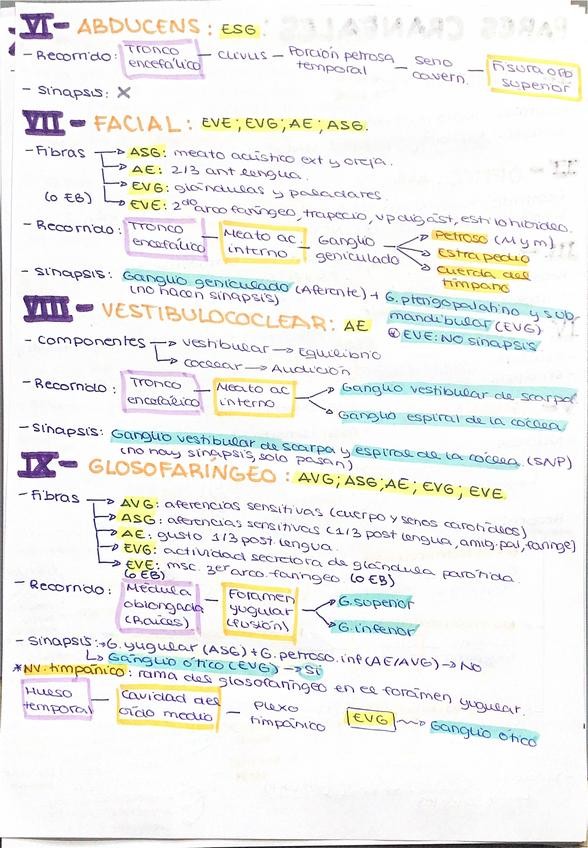 VI - ABDUCENS: ESG
- Recorrido: Tronco encefálico - clivus - Porción petrosa temporal - Seno cavern. - Fisura orb superior
- Sinapsis: X
VII - FACIAL: EVE; EVG; AE; ASG.
- Fibras → ASG: meato acústico ext y oreja.
→ AE: 2/3 ant lengua.
→ EVG: glándulas y paladares.
(o EB) → EVE: 2do arco faríngeo, trapecio, vp digást, estilohioideo.
- Recorrido: Tronco encefálico - Meato ac. interno - Ganglio geniculado → Petroso (M y m)
→ Estrapedio
→ cuerda del tímpano
- Sinapsis: Ganglio geniculado (Aferente) + G. pterigopalatino y sub
(no hacen sinapsis) mandibular (EVG)
* EVE: NO sinapsis
VIII - VESTIBULOCOCLEAR: AE
- Componentes → vestibular → Equilibrio
→ coclear → Audición
- Recorrido: Tronco encefálico - Meato ac interno → Ganglio vestibular de scarpa
→ Ganglio espiral de la coclea
- Sinapsis: Ganglio vestibular de scarpa y espiral de la coclea. (SNP)
(no hay sinapsis, solo pasan)
IX - GLOSOFARINGEO: AVG; ASG; AE; EVG; EVE
- Fibras → AVG: aferencias sensitivas (cuerpo y senos carotídeos)
→ ASG: aferencias sensitivas (1/3 post lengua, amig. pal, faringe)
→ AE: gusto 1/3 post lengua.
→ EVG: actividad secretora de glándula parótida.
→ EVE: msc. 3er arco faríngeo (o EB)
(o EB)
- Recorrido: Médula oblongada (Raíces) - Foramen yugular (fusión) → G. superior
→ G. inferior
- Sinapsis: → G. yugular (ASG) + G. petroso. inf (AE/AVG) → No
↳ Ganglio ótico (EVG) → Sí
* NV. timpánico: rama del glosofaríngeo en el foramen yugular.
Hueso temporal - Cavidad del oído medio - Plexo timpánico EVG → Ganglio ótico